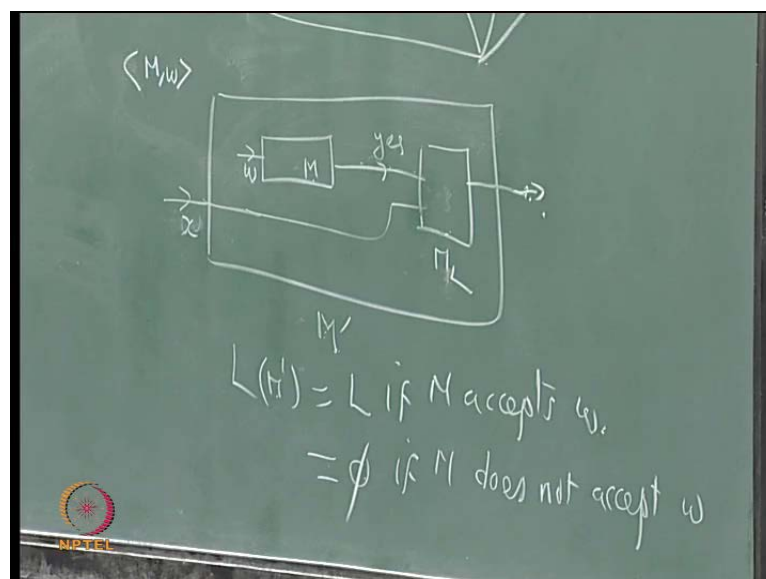 ⟨M,w⟩
yes
w M
x
M_L
M'
L(M') = L if M accepts w.
= ϕ if M does not accept w
NPTEL